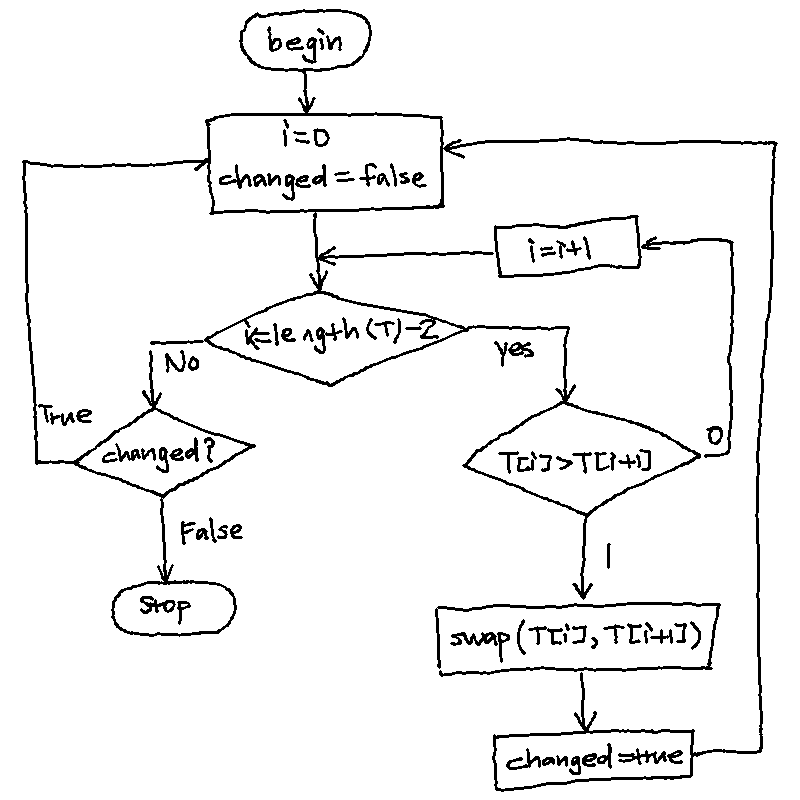 begin
i=0
changed = false
i=i+1
i<=length(T)-2
No
yes
True
changed?
T[i]>T[i+1]
0
False
1
stop
swap(T[i], T[i+1])
changed=true